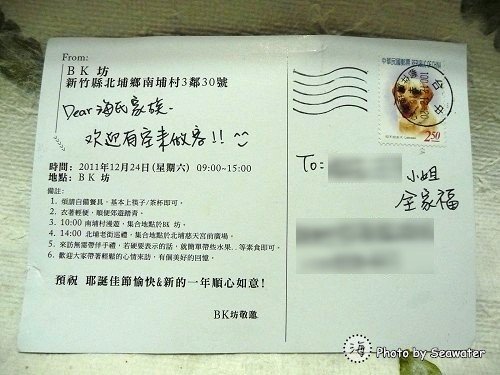 From:
BK 坊
新竹縣北埔鄉南埔村3鄰30號
Dear 海氏家族-
欢迎有空来做客!!
時間：2011年12月24日(星期六) 09:00~15:00
地點：BK 坊
備註：
1. 煩請自備餐具，基本上筷子/茶杯即可。
2. 衣著輕便，順便郊遊踏青。
3. 10:00 南埔村漫遊，集合地點於BK 坊。
4. 14:00 北埔老街巡禮，集合地點於北埔慈天宮前廣場。
5. 來訪無需帶伴手禮，若硬要表示的話，就簡單帶些水果..等素食即可。
6. 歡迎大家帶著輕鬆的心情來訪，有個美好的回憶。
預祝 耶誕佳節愉快&新的一年順心如意!
BK坊敬邀
中華民國郵票
REPUBLIC OF CHINA
台中
250
To:
小姐
全家福
海 Photo by Seawater